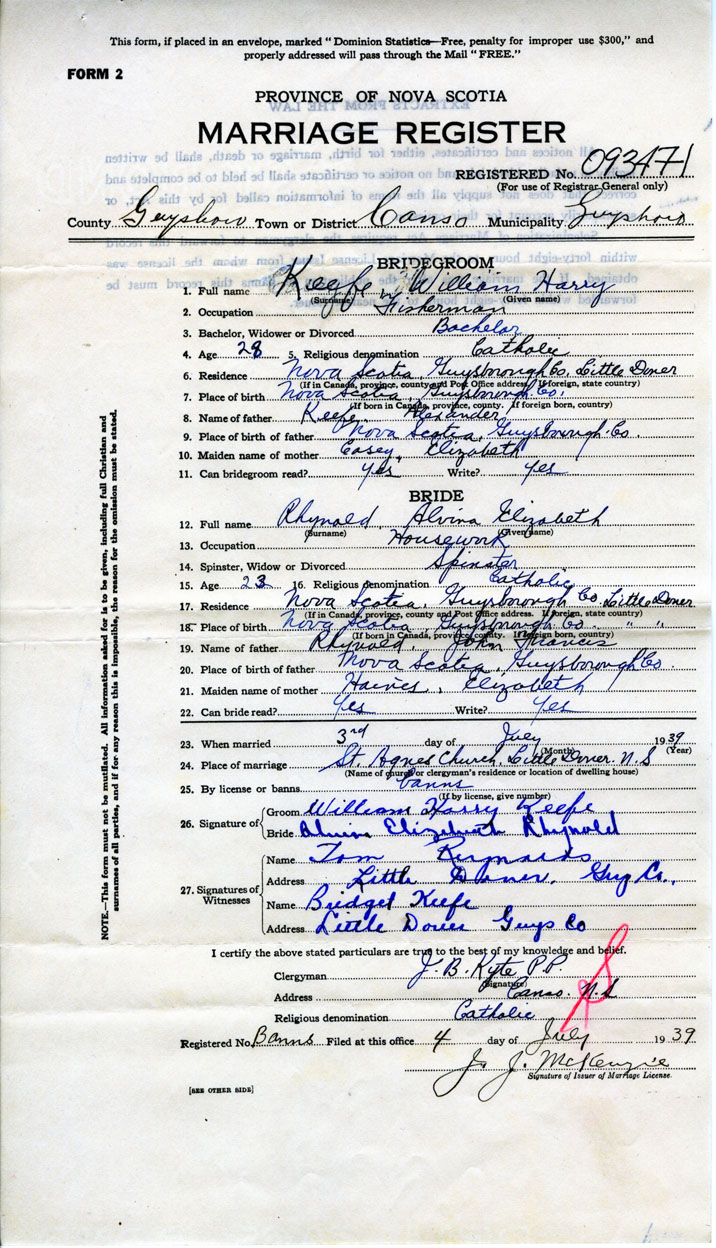 This form, if placed in an envelope, marked "Dominion Statistics—Free, penalty for improper use $300," and
properly addressed will pass through the Mail "FREE."
FORM 2
PROVINCE OF NOVA SCOTIA
MARRIAGE REGISTER
REGISTERED No. 093471
(For use of Registrar General only)
County Guysboro Town or District Canso Municipality Guysboro
BRIDEGROOM
1. Full name Keefe, William Harry
(Surname) (Given name)
2. Occupation Fisherman
3. Bachelor, Widower or Divorced Bachelor
4. Age 28 5. Religious denomination Catholic
6. Residence Nova Scotia, Guysborough Co, Little Dover
(If in Canada, province, county and Post Office address. If foreign, state country)
7. Place of birth Nova Scotia, Guysborough Co,
(If born in Canada, province, county. If foreign born, country)
8. Name of father Keefe, Alexander
9. Place of birth of father Nova Scotia, Guysborough Co.
10. Maiden name of mother Casey, Elizabeth
11. Can bridegroom read? yes Write? yes
BRIDE
12. Full name Rhynold, Alvina Elizabeth
(Surname) (Given name)
13. Occupation Housework
14. Spinster, Widow or Divorced Spinster
15. Age 23 16. Religious denomination Catholic
17. Residence Nova Scotia, Guysborough Co, Little Dover
(If in Canada, province, county and Post Office address. If foreign, state country)
18. Place of birth Nova Scotia, Guysborough Co. " "
(If born in Canada, province, county. If foreign born, country)
19. Name of father Rhynold, John Francis
20. Place of birth of father Nova Scotia, Guysborough Co.
21. Maiden name of mother Haines, Elizabeth
22. Can bride read? Yes Write? Yes
23. When married 3rd day of July 1939
(Month) (Year)
24. Place of marriage St. Agnes Church, Little Dover. N.S
(Name of church or clergyman's residence or location of dwelling house)
25. By license or banns banns
(If by license, give number)
26. Signature of Groom William Harry Keefe
Bride Alvina Elizabeth Rhynold
27. Signatures of Witnesses
Name Tom
Address Little Dover, Guy Co.,
Name Bridget Keefe
Address Little Dover Guys Co
I certify the above stated particulars are true to the best of my knowledge and belief.
Clergyman J. B. Kyte P.P.
(Signature)
Address Canso. N.S
Religious denomination Catholic
Registered No. Banns Filed at this office 4 day of July 1939
J. J. McKenzie
Signature of Issuer of Marriage License.
[SEE OTHER SIDE]
NOTE.—This form must not be mutilated. All information asked for is to be given, including full Christian and
surnames of all parties, and if for any reason this is impossible, the reason for the omission must be stated.